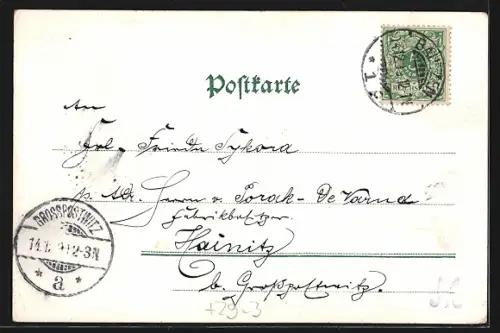 BAUTZEN
* 1 *
Postkarte
An
Frl. Frieda Sykora
p. Adr. Herrn v. Porak-De Varna
Fabrikbesitzer
Hainitz
b. Großpostwitz.
GROSSPOSTWITZ
2-3N
* a *